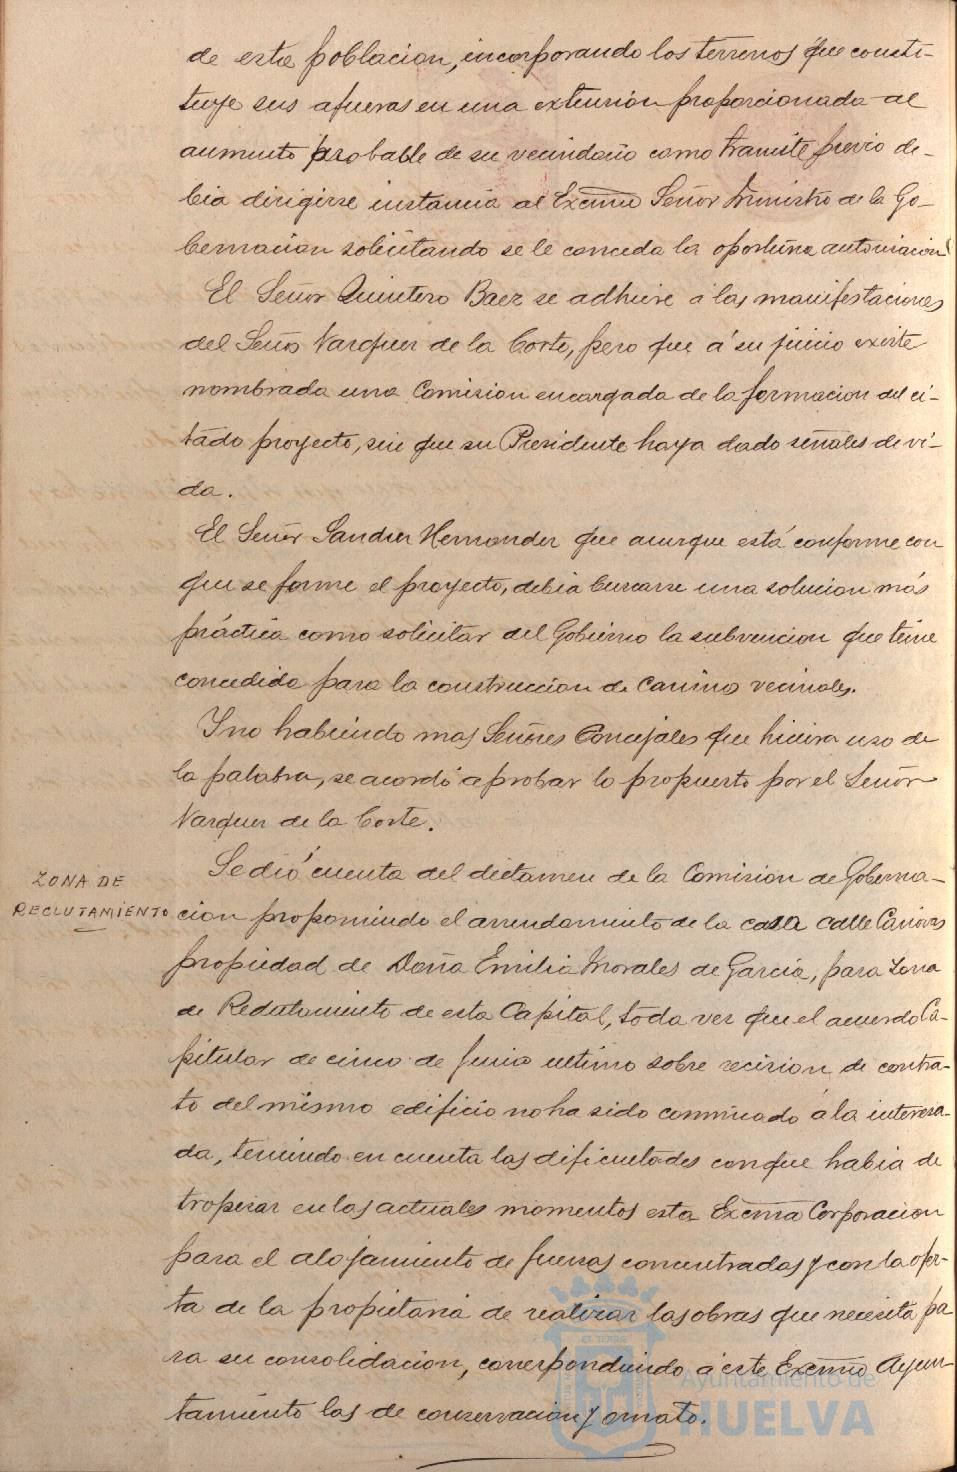 de esta poblacion, incorporando los terrenos que consti-
tuye sus afueras en una extension proporcionada al
aumento probable de su vecindario como tramite previo de-
bia dirigirse instancia al Excmo Señor Ministro de la Go-
bernacion solicitando se le conceda la oportuna autorizacion
El Señor Quintero Baez se adhiere á las manifestaciones
del Señor Vazquez de la Corte, pero que á su juicio existe
nombrada una Comision encargada de la formacion del ci-
tado proyecto, sin que su Presidente haya dado señales de vi-
da.
El Señor Sanchez Hernandez que aunque está conforme con
que se forme el proyecto, debia buscarse una solucion más
práctica como solicitar del Gobierno la subvencion que tiene
concedida para la construccion de caminos vecinales.
Y no habiendo mas Señores Concejales que hiciera uso de
la palabra, se acordó aprobar lo propuesto por el Señor
Vazquez de la Corte.
ZONA DE
RECLUTAMIENTO
Se dió cuenta del dictamen de la Comision de Goberna-
cion proponiendo el arrendamiento de la casa calle Canovas
propiedad de Doña Emilia Morales de Garcia, para Zona
de Reclutamiento de esta Capital, toda vez que el acuerdo Ca-
pitular de cinco de Junio ultimo sobre recision de contra-
to del mismo edificio no ha sido comunicado á la interesa-
da, teniendo en cuenta las dificultades con que habia de
tropezar en los actuales momentos esta Excma Corporacion
para el alojamiento de fuerzas concentradas y con la ofer-
ta de la propietaria de realizar las obras que necesita pa
ra su consolidacion, correspondiendo á este Excmo Ayun-
tamiento las de conservacion y ornato.
Ayuntamiento de
HUELVA